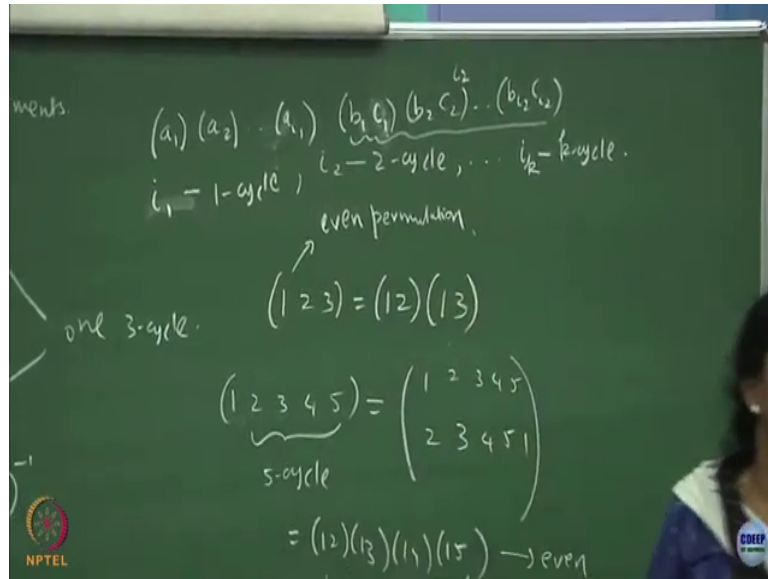 ments.
i₂
(a₁) (a₂) ... (aᵢ₁) (b₁ c₁) (b₂ c₂) .. (bᵢ₂ cᵢ₂)
i₁ – 1-cycle, i₂ – 2-cycle, ... iₖ – k-cycle.
even permutation.
(1 2 3) = (12)(13)
one 3-cycle.
(1 2 3 4 5) = (1 2 3 4 5
2 3 4 5 1)
5-cycle
)⁻¹
= (12)(13)(14)(15) → even
NPTEL
CDEEP